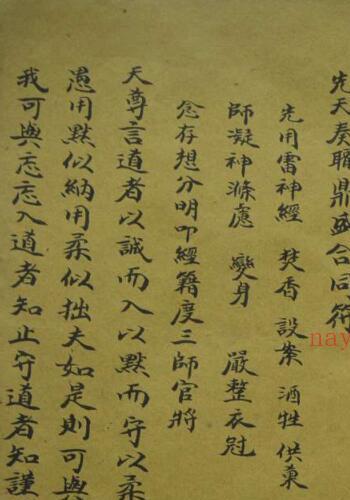 先天奏鼎盛合同符
先用雷神經 焚香設案酒牲供菓
師凝神滌慮 變身 嚴整衣冠
念存想分明叩經籍度三師官將
天尊言道者以誠而入以默而守以柔
愚用默似納用柔似拙夫如是則可與
我可與忘忘入道者知止守道者知謹
nay